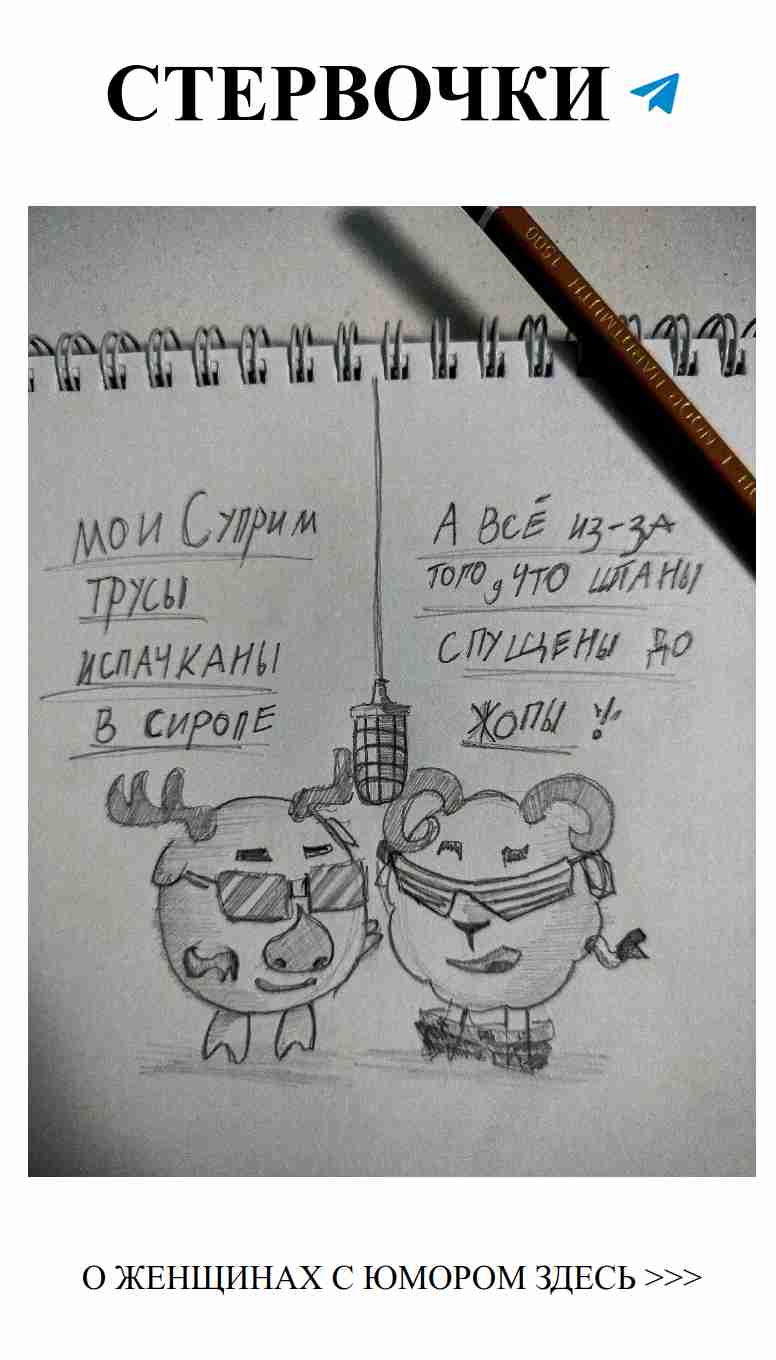 СТЕРВОЧКИ
1500 HARDTMUTH
мои Суприм
трусы
испачканы
в сиропе
А всё из-за
того, что штаны
спущены до
жопы !!
О ЖЕНЩИНАХ С ЮМОРОМ ЗДЕСЬ >>>